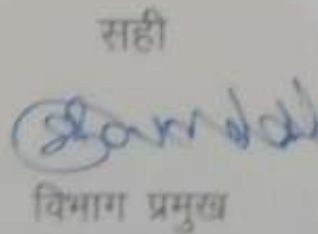 सही
विभाग प्रमुख